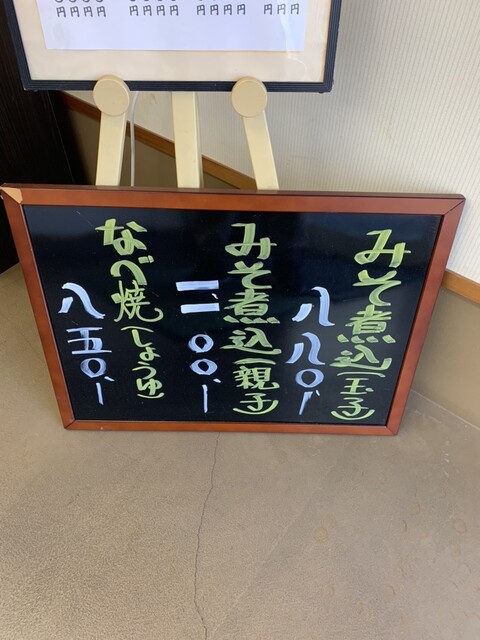 円円円円 円円円円 円円円円 円円円
みそ煮込(玉子)
八八〇、ー
みそ煮込(親子)
一、一〇〇、ー
なべ焼(しょうゆ)
八五〇、ー